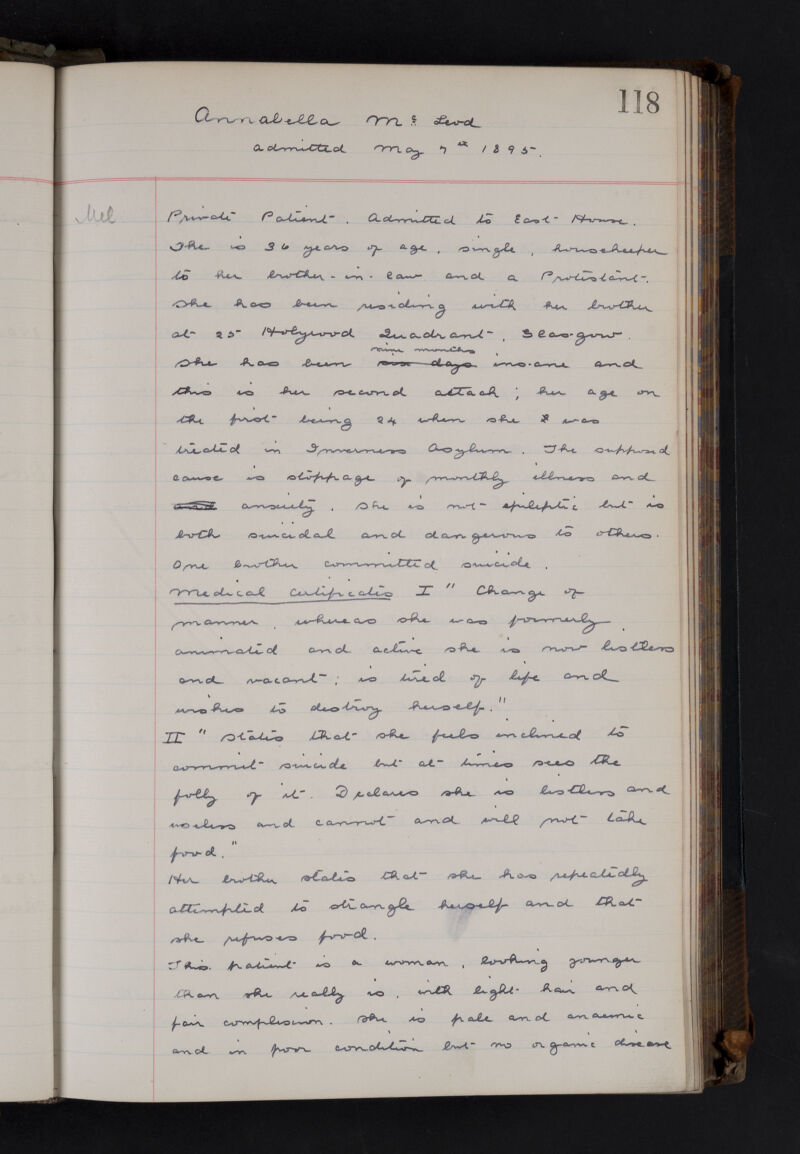 118
Annabella Mc Leod
admitted May 7th 1895.
Mel
Private Patient. Admitted to East House.
She is 36 years of age, single, housekeeper
to her brother-in-law and a Protestant.
She has been residing with her brother
at 25 Holywood Quadrant, Glasgow.
She has been six days nine months insane and
this is her second attack; her age on
the first being 24 when she was
treated in Inverness Asylum. The supposed
cause is stoppage of monthly illness and
and anxiety. She is not epileptic but is
both suicidal and dangerous to others.
One brother committed suicide.
Medical Certificates I "Change of
manner, whereas she was formerly
animated and active she is now listless
and vacant; is tired of life and
wishes to destroy herself."
II "States that she feels inclined to
commit suicide but at times sees the
folly of it. Declares she is listless and
useless and cannot and will not take
food."
Her brother states that she has repeatedly
attempted to strangle herself and that
she refuses food.
This patient is a woman, looking younger
than she really is, with light hair and
fair complexion. She is pale and anaemic
and in poor condition but no organic disease